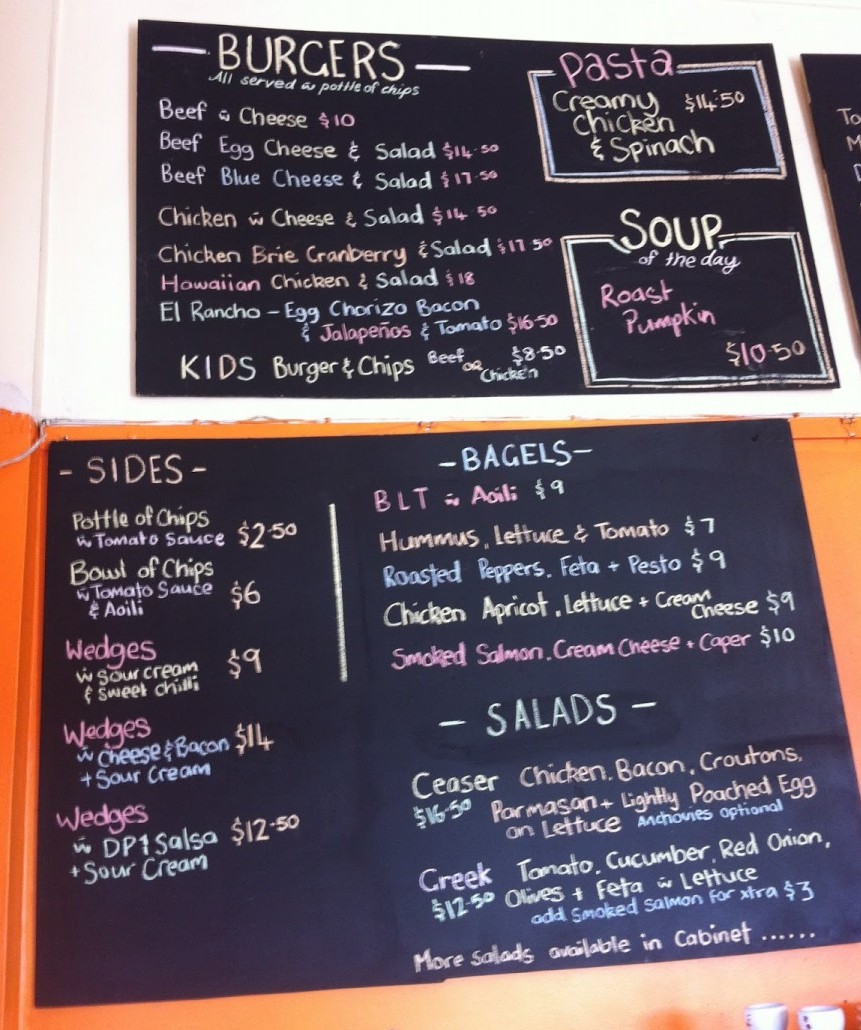 BURGERS
All served w pottle of chips
Beef w Cheese $10
Beef Egg Cheese & Salad $14.50
Beef Blue Cheese & Salad $17.50
Chicken w Cheese & Salad $14.50
Chicken Brie Cranberry & Salad $17.50
Hawaiian Chicken & Salad $18
El Rancho - Egg Chorizo Bacon
& Jalapeños & Tomato $16.50
KIDS Burger & Chips Beef or Chicken $8.50
Pasta
Creamy $14.50
Chicken
& Spinach
SOUP
of the day
Roast
Pumpkin
$10.50
To
M
- SIDES -
Pottle of Chips
w Tomato Sauce $2.50
Bowl of Chips
w Tomato Sauce $6
& Aoili
Wedges
w Sour cream $9
& Sweet chilli
Wedges
w Cheese & Bacon $14
+ Sour Cream
Wedges
w DP1 Salsa $12.50
+ Sour Cream
- BAGELS -
BLT w Aoili $9
Hummus, Lettuce & Tomato $7
Roasted Peppers, Feta + Pesto $9
Chicken Apricot, Lettuce + Cream
Cheese $9
Smoked Salmon, Cream Cheese + Caper $10
- SALADS -
Ceaser Chicken, Bacon, Croutons,
$16.50 Parmasan + Lightly Poached Egg
on Lettuce Anchovies optional
Greek Tomato, Cucumber, Red Onion,
$12.50 Olives + Feta w Lettuce
add Smoked Salmon for xtra $3
More Salads available in Cabinet ......